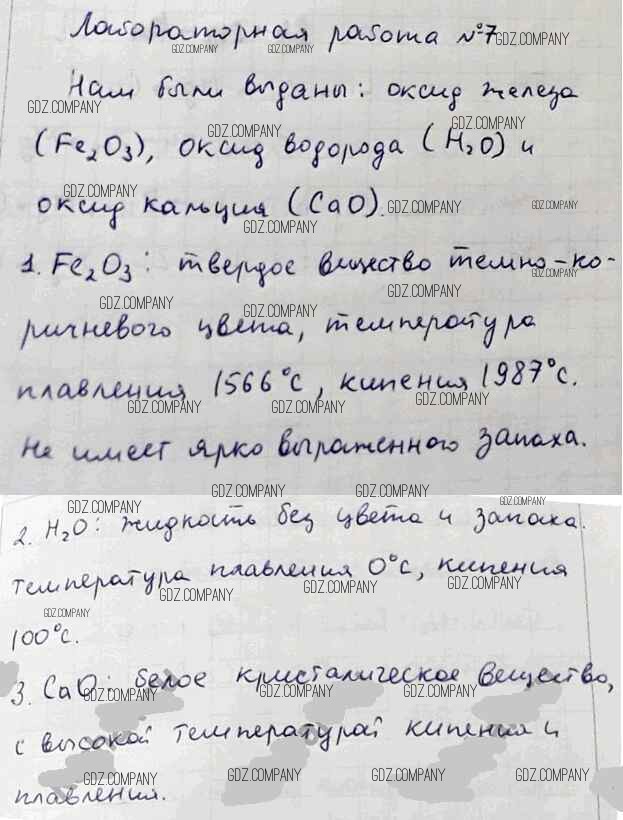 Лабораторная работа №7
Нам были выданы: оксид железа
(Fe₂O₃), оксид водорода (H₂O) и
оксид кальция (CaO).
1. Fe₂O₃: твердое вещество темно-ко-
ричневого цвета, температура
плавления 1566°C, кипения 1987°C.
Не имеет ярко выраженного запаха.
2. H₂O: жидкость без цвета и запаха.
температура плавления 0°C, кипения
100°C.
3. CaO: белое кристалическое вещество,
с высокой температурой кипения и
плавления.
GDZ.COMPANY